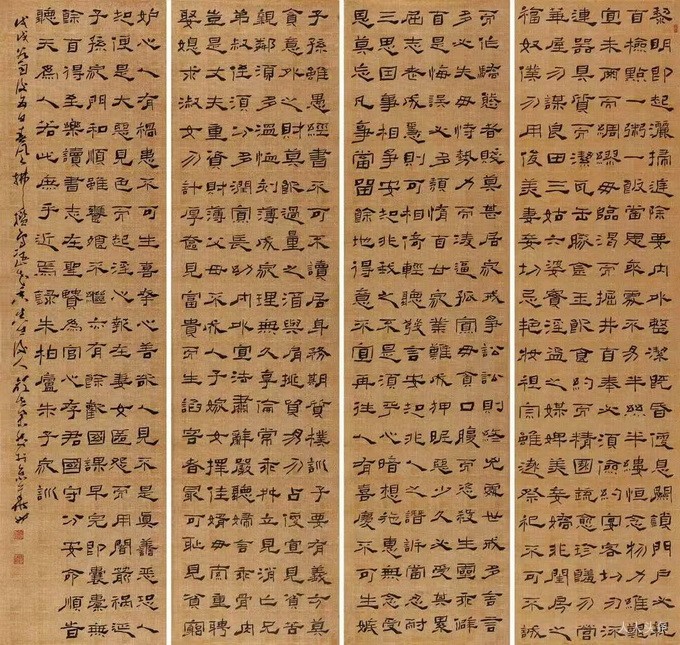 黎明即起灑掃庭除要內外整潔既昏便息關鎖門戶必親
自檢點一粥一飯當思來處不易半絲半縷恒念物力維艱
宜未雨而綢繆毋臨渴而掘井自奉必須儉約宴客切勿流
連器具質而潔瓦缶勝金玉飲食約而精園蔬愈珍饈勿營
華屋勿謀良田三姑六婆實淫盜之媒婢美妾嬌非閨房之
福奴僕勿用俊美妻妾切忌艷妝祖宗雖遠祭祀不可不誠
而作驕態者賤莫甚居家戒爭訟訟則終凶處世戒多言言
多必失毋恃勢力而凌逼孤寡毋貪口腹而恣殺生禽乖僻
自是悔誤必多頹惰自甘家業難成狎昵惡少久必受其累
屈志老成急則可相依輕聽發言安知非人之譖訴當忍耐
三思因事相爭安知非我之不是須平心暗想施惠無念受
恩莫忘凡事當留餘地得意不宜再往人有喜慶不可生嫉
子孫雖愚經書不可不讀居身務期質樸訓子要有義方莫
貪意外之財莫飲過量之酒與肩挑貿易勿占便宜見貧苦
親鄰須多溫恤刻薄成家理無久享倫常乖舛立見消亡兄
弟叔侄須分多潤寡長幼內外宜法肅辭嚴聽婦言乖骨肉
豈是丈夫重資財薄父母不成人子嫁女擇佳婿毋索重聘
娶媳求淑女勿計厚奩見富貴而生諂容者最可恥見貧窮
妒心人有禍患不可生喜幸心善欲人見不是真善惡恐人
知便是大惡見色而起淫心報在妻女匿怨而用暗箭禍延
子孫家門和順雖饔飧不繼亦有餘歡國課早完即囊橐無
餘自得至樂讀書志在聖賢為官心存君國守分安命順時
聽天為人若此庶乎近焉錄朱柏廬朱子家訓